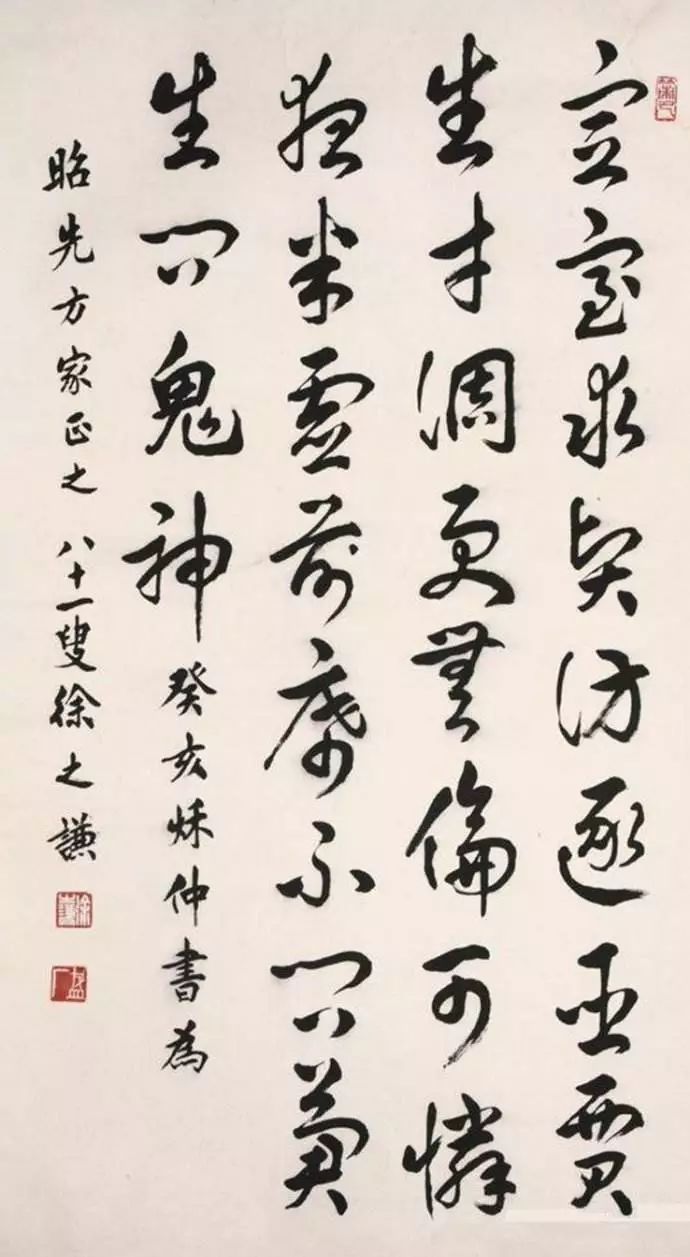 宣室求賢訪逐臣賈
生才調更無倫可憐
夜半虛前席不問蒼
生問鬼神 癸亥秋仲書為
昭先方家正之 八十一叟徐之謙